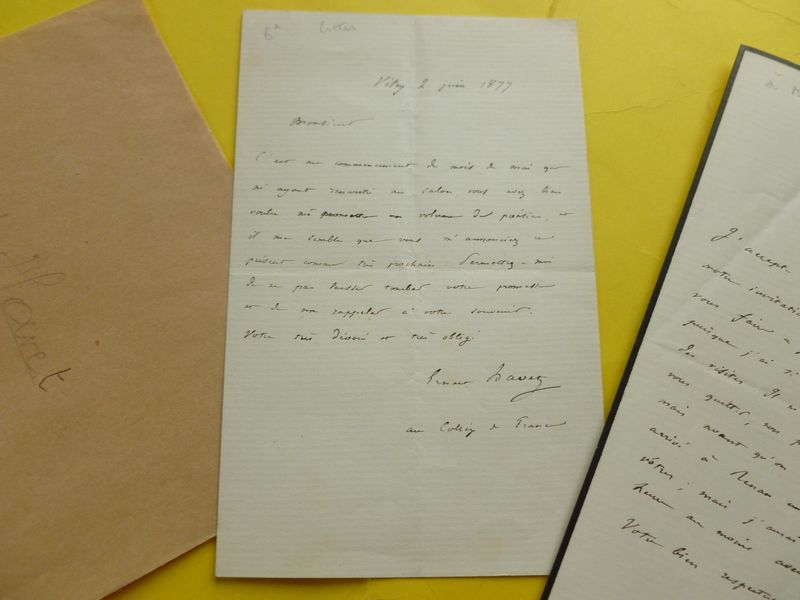 Havet
lettres
Vitry 2 juin 1877
Monsieur
C'est au commencement du mois de mai que
m'ayant rencontré au salon, vous avez bien
voulu me promettre un volume des poésies, et
il me semble que vous m'annonciez ce
présent comme très prochain. Permettez-moi
de ne pas laisser tomber votre promesse
et de me rappeler à votre souvenir.
Votre très dévoué et très obligé
Ernest Havet
au Collège de France
J'accepte
votre invitation
vous faire
puisque j'ai
des visites
vous quittez,
mais avant qu'on
arrivé à Renan
vôtres; mais j'aurai
au moins
Votre bien